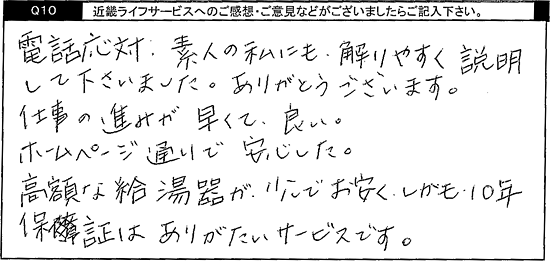 Q10 近畿ライフサービスへのご感想・ご意見などがございましたらご記入下さい。
電話応対、素人の私にも、解りやすく説明
して下さいました。ありがとうございます。
仕事の進みが早くて、良い。
ホームページ通りで安心した。
高額な給湯器が、でお安く、しかも、10年
保証はありがたいサービスです。